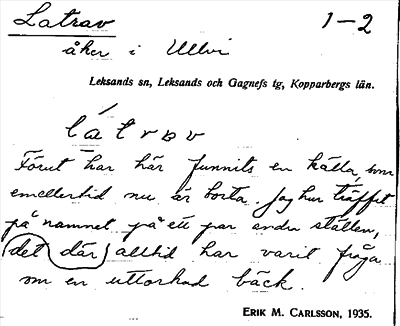 Latrav 1-2
åker i Ullvi
Leksands sn, Leksands och Gagnefs tg, Kopparbergs län.
látrav
Förut har här funnits en källa, som
emellertid nu är borta. Jag har träffat
på namnet på ett par andra ställen,
det där alltid har varit fråga
om en uttorkad bäck.
ERIK M. CARLSSON, 1935.